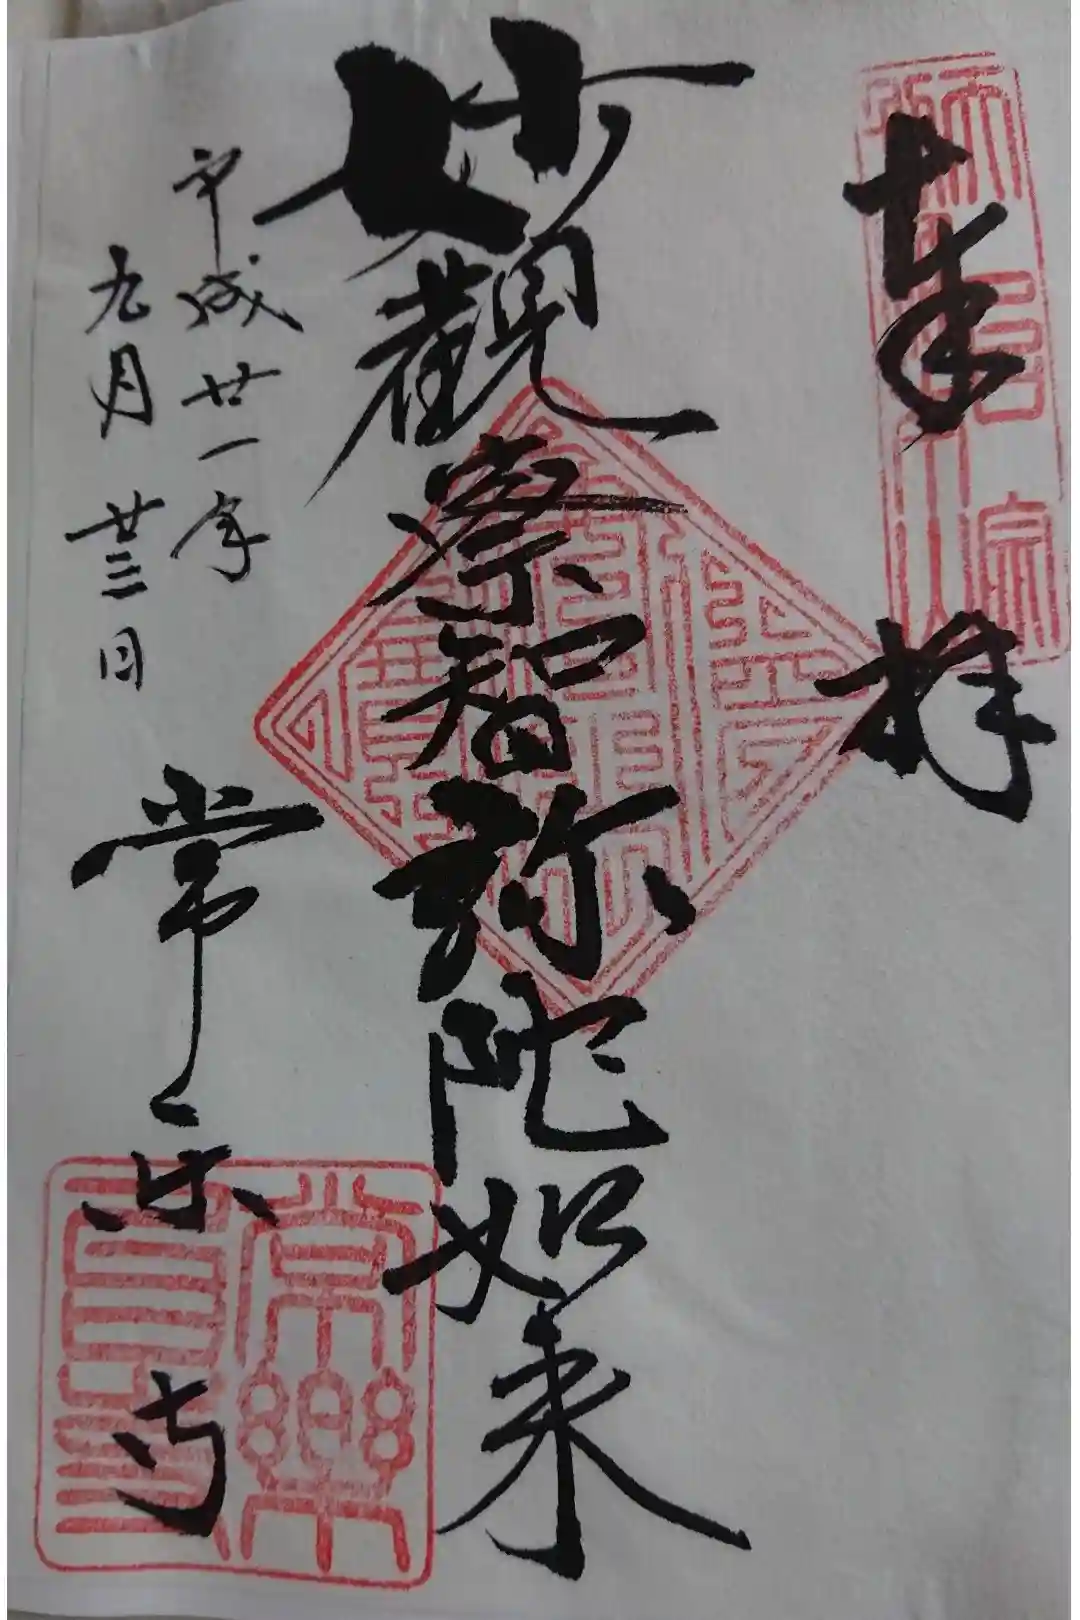 奉拝
妙觀察智弥陀如来
平成廿一年
九月廿三日
常楽寺